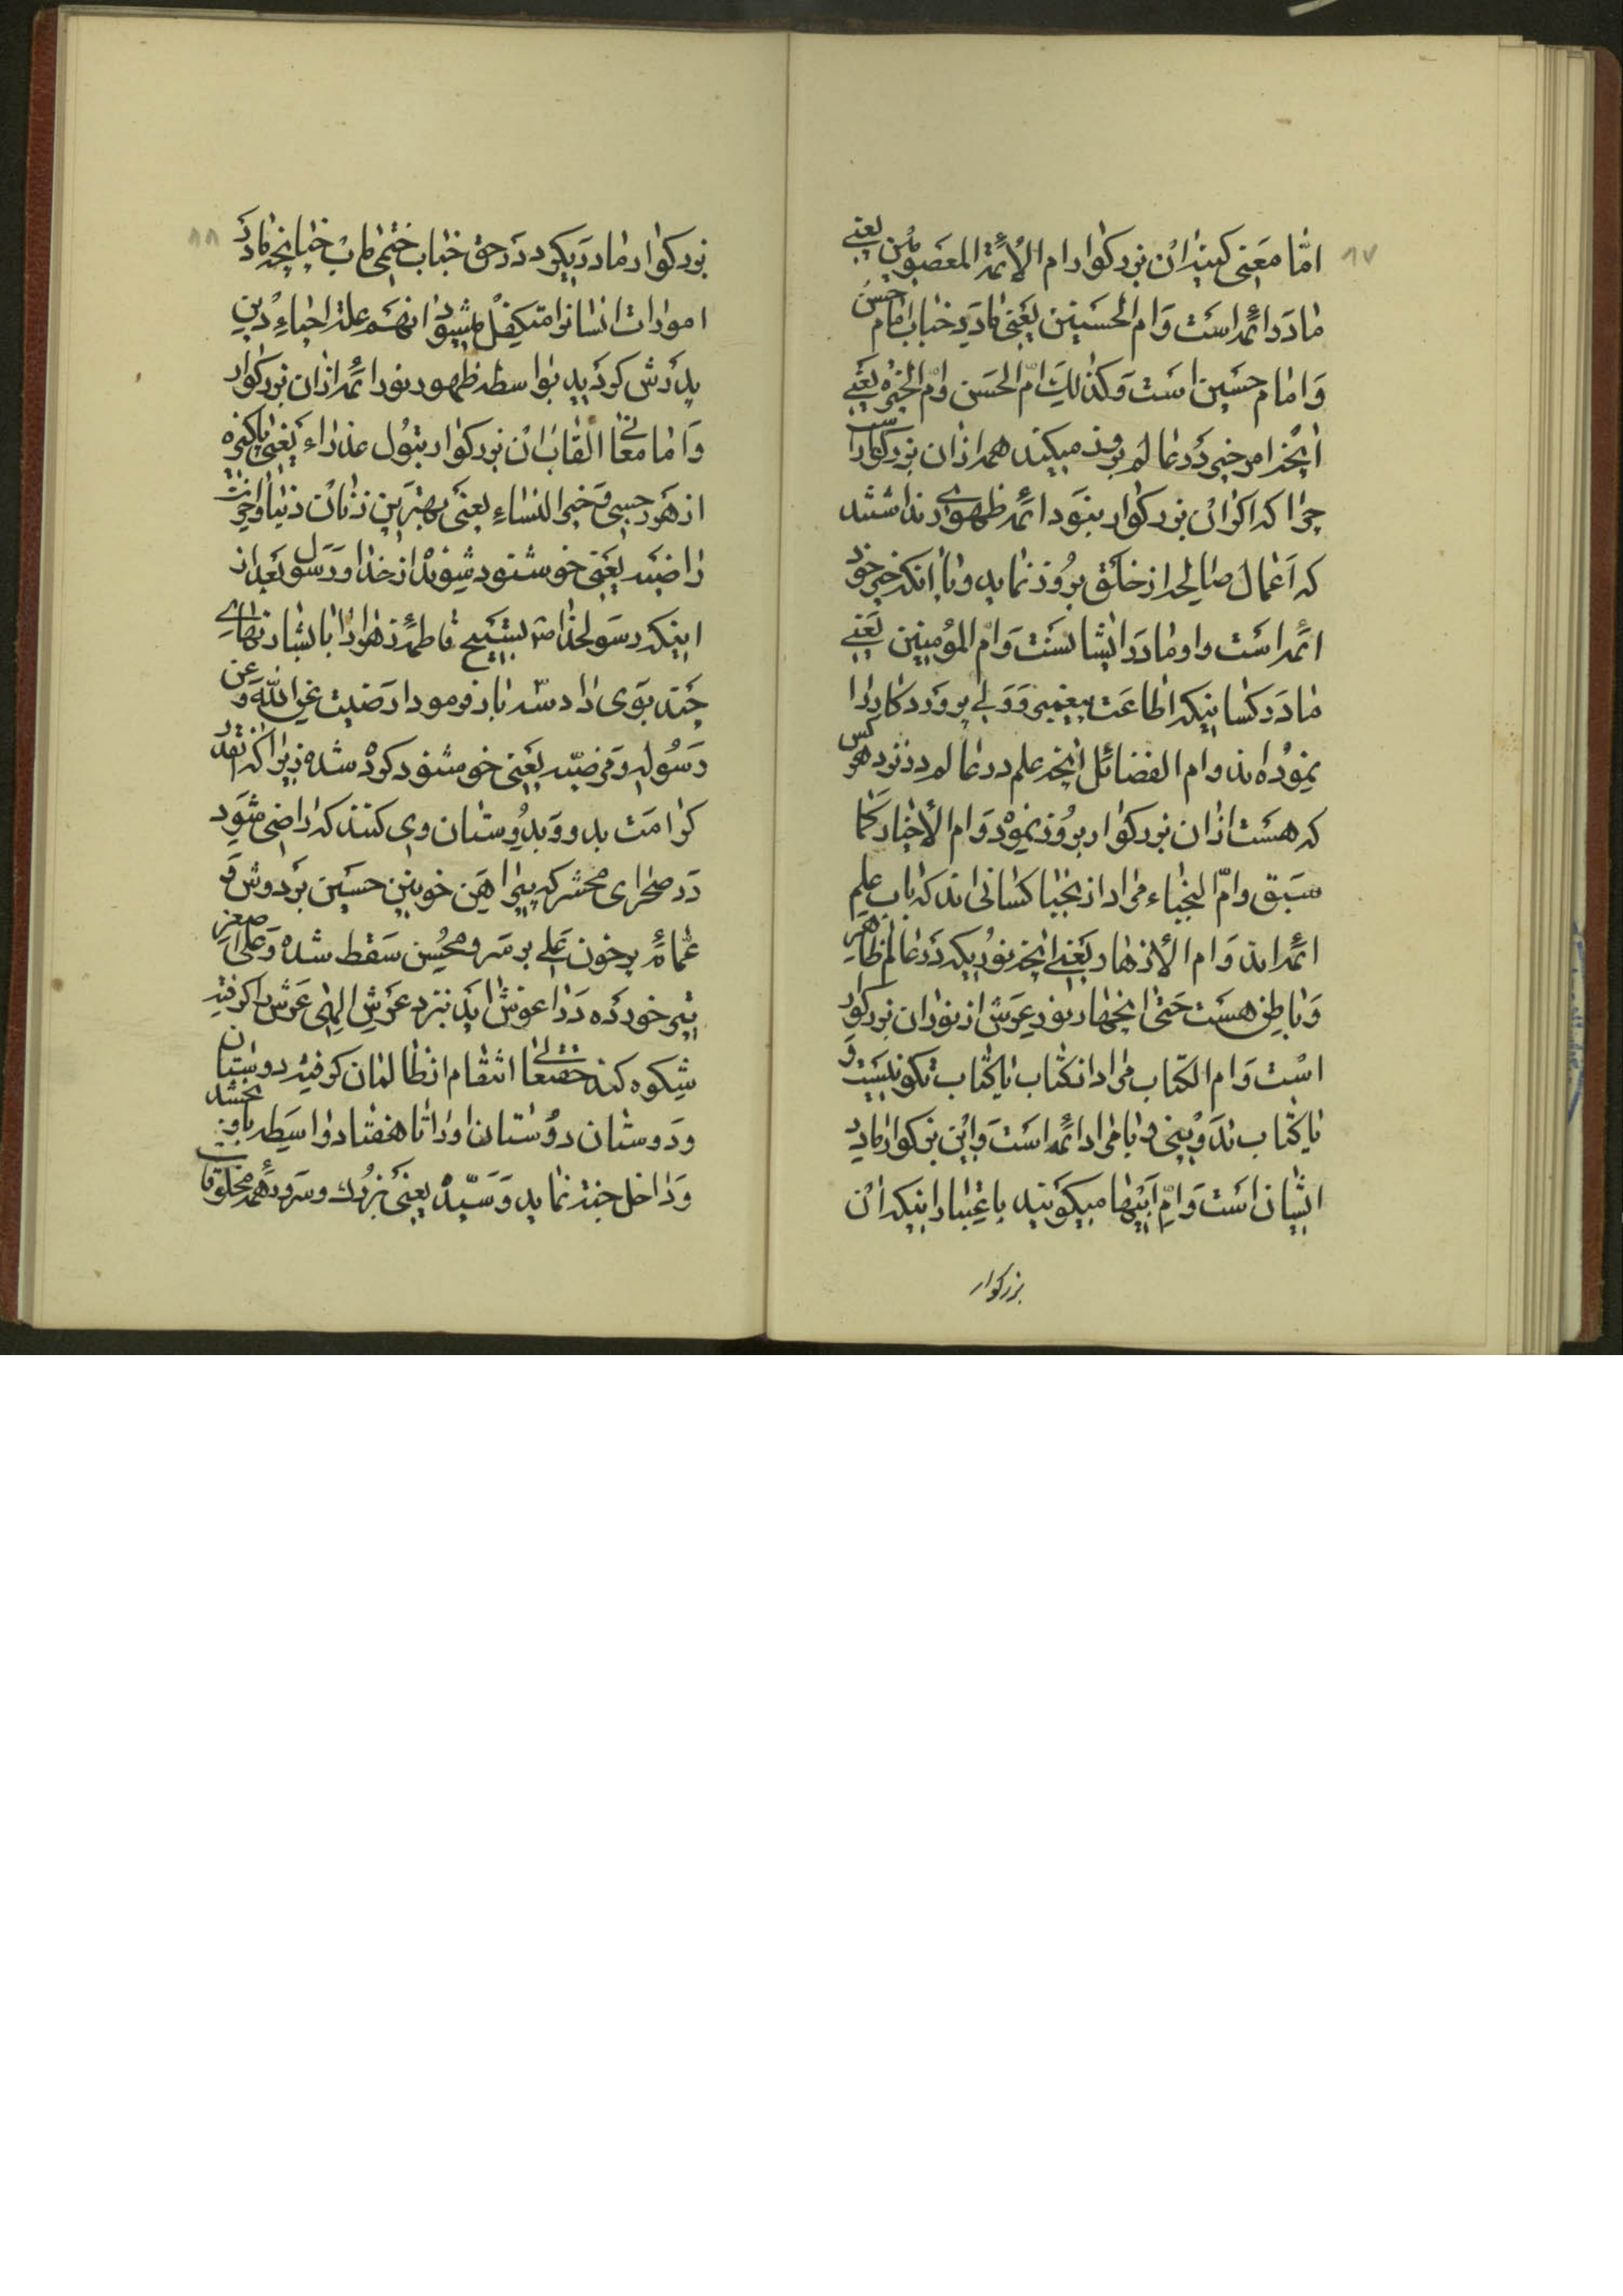 ۸۷
امّا معنی کنیه ان بزرکوار ام الأئمة المعصومین یعنی
مادر ائمه است و ام الحسنین یعنی مادر جناب امام حسن
و امام حسین است و کذلک امّ الحسن و امّ الخیره یعنی
انچه امر خیر در عالم بروز میکند همه از ان بزرکوار است
چرا که اکر ان بزرکوار نبود ائمه ظهوری نداشتند
که اعمال صالحه از خلق بروز نماید و یا انکه خیر خود
ائمه است و او مادر ایشانست و امّ المؤمنین یعنی
مادر کسانیکه اطاعت پیغمبر و ولی پروردکار را
نموده اند و ام الفضائل انچه علم در عالم در نزد هر کس
که هست از ان بزرکوار بروز نموده و ام الأخیار کما
سبق و امّ النجباء مراد از نجبا کسانی اند که باب علم
ائمه اند و ام الأزهار یعنی انچه نوریکه در عالم ظاهر
و باطن هست حتی انچهار نور عرش از نور ان بزرکوار
است و ام الکتاب مراد از کتاب یا کتاب تکونیست و
یا کتاب تدوینی و یا مراد ائمه است و این بزرکوار مادر
ایشان است و امّ ابیها میکویند باعتبار اینکه ان
بزرکوار
۸۸
بزرکوار مادری کرد در حق جناب ختمی ماب چنانچه مادر
امورات انسانرا متکفل میشود انهم علة احیاء دین
پدرش کردید بواسطه ظهور نور ائمه از ان بزرکوار
و اما معانی القاب ان بزرکوار بتول عذراء یعنی پاکیزه
از هر حسی و خیر النساء یعنی بهترین زنان دنیا و اخرت
راضیه یعنی خوشنود شونده از خدا و رسول بعد از
اینکه رسولخدا ص بتسبیح فاطمه زهرا را بابشارتهای
چند بوی داد سّه بار فرمود ارضیت عن الله و عن
رسوله و مرضیّه یعنی خوشنود کرده شده زیرا که انقدر
کرامت بدو و بدوستان وی کنند که راضی شود
در صحرای محشر که پیراهن خونین حسین بر دوش و
عمامه پر خون علی بر سر و محسن سقط شده و علی اصغر
تیر خورده در اغوش اید نزد عرش الهی عرش را کرفته
شکوه کند حقتعالی انتقام از ظالمان کرفته دوستان
و دوستان دوستان او را تا هفتاد واسطه باو بخشد
و داخل جنة نماید و سیّده یعنی بزرك و سرور همه مخلوقات